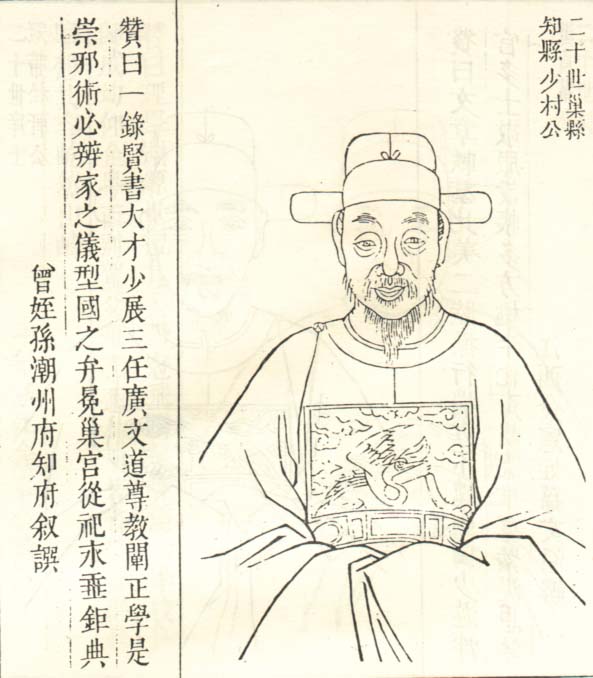 二十世巢縣
知縣少村公
贊曰一錄賢書大才少展三任廣文道尊教闡正學是
崇邪術必辨家之儀型國之弁冕巢宮從祀永垂鉅典
曾姪孫潮州府知府叙譔